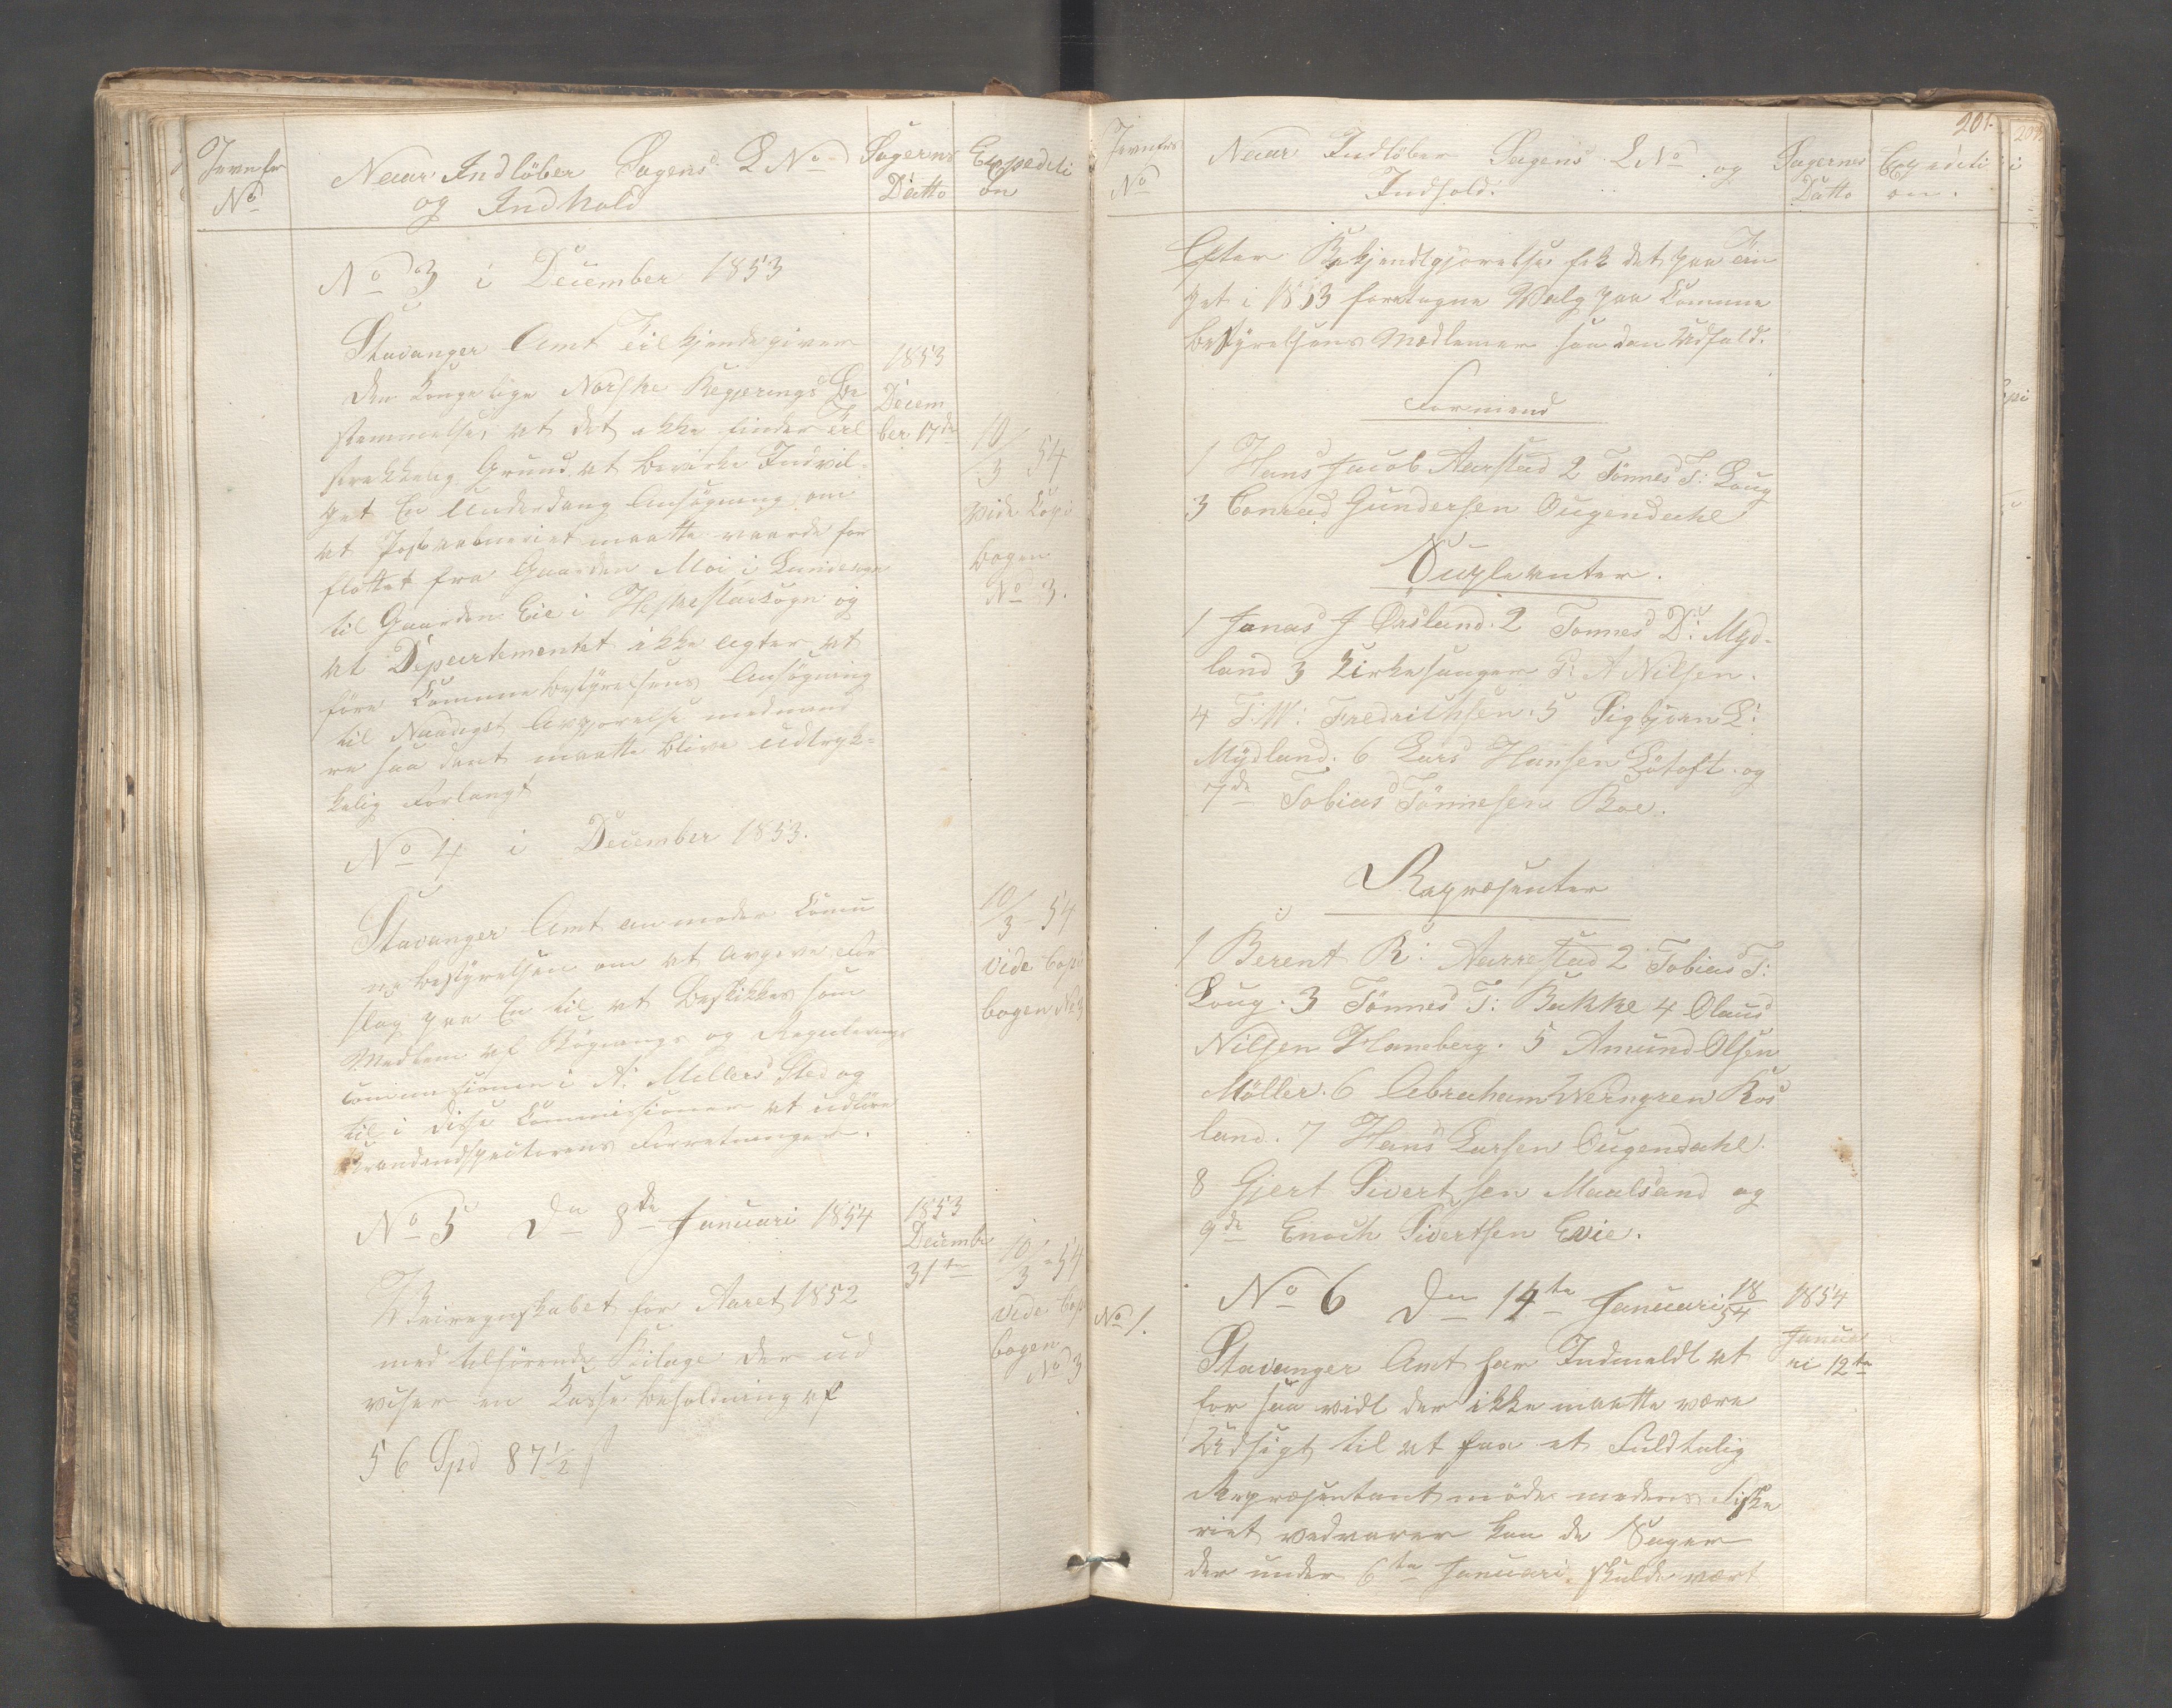 Jevnfr
No
Naar Indlöber Sagens L No
og Indhold
Sagerns
Datto
Expediti
on
No 3 i December 1853
Stavanger Amt Tilkjendegiver
den Kongelige Norske Regjerings Be
stemmelse, at det ikke finder Til
strekkelig Grund at bevirke Indvil-
get En Underdanig Ansögning om
at Postaabneriet maatte vaarde for
flöttet fra Gaarden Moi i Lundesogn
til Gaarden Eie i Heskestadsogn og
at Departementet ikke agter at
före Communebestyrelsens Ansögning
til Naadigst Avgjorelse medmand
re saadant maatte blive udtryk-
kelig Forlangt
1853
Decem
ber 17de
10/3 54
vide Copi
bogen
No 3.
No 4 i December 1853.
Stavanger Amt anmoder Comu
ne bestyrelsen om at avgeve For
slag paa En til at beskikkes som
Medlem af Bögnings og Regulerings
Commisionen i A: Mellers Sted og
til i disse Commisioner at udföre
Brandindspecteurens Forretninger.
10/3 - 54
vide Copi
bogen No 3
No 5 Den 8de Januari 1854
Veiregnskabet for Aaret 1852
med tilhörende Bilage der ud
viser en Kasse beholdning af
56 Spd 87 1/2 s
1853
Decembr
31te
10/3 - 54
vide Cop
bogen
No 3
201.
Jevnfrs
No
Naar Indlöber Sagens L No og
Indhold.
Sagernes
Datto
Expediti
on.
Efter Bekjendtgjörelse fik det paa Tin
get i 1853 foretagne Valg paa Comune
bestyrelsens Medlemer saadan Udfald.
Formend
1 Hans Jacob Aarstad 2 Tönnes T: Loug
3 Conrad Gundersen Ougendahl
Suplenter.
1 Jonas J Örsland. 2 Tonnes D: Myd-
land 3 Kirkesanger P: A Nilsen.
4 T: W: Fredrichsen. 5 Sigbjörn L:
Mydland. 6 Lars Hansen Lötoft. og
7de Tobias Tönnesen Boe.
Repræsenter
1 Berent R: Aarrestad 2 Tobias T:
Loug. 3 Tönnes T: Bakke 4 Olaus
Nilsen Hameberg. 5 Amund Olsen
Möller. 6 Abraham Werngren Ros
land. 7 Hans Larsen Ougendahl.
8 Gjert Sivertsen Maalsand og
9de Enoch Sivertsen Evie.
No 1.
No 6 Den 14te Januari 18/54
Stavanger Amt har Indmeldt at
for saa vidt der ikke maatte være
Udsigt til at faa et Fuldtalig
Repræsentant möde medens Fiske
riet vedvarer kan de Sager
der under 6te Januari skulde vært
1854
Janua
ri 12te